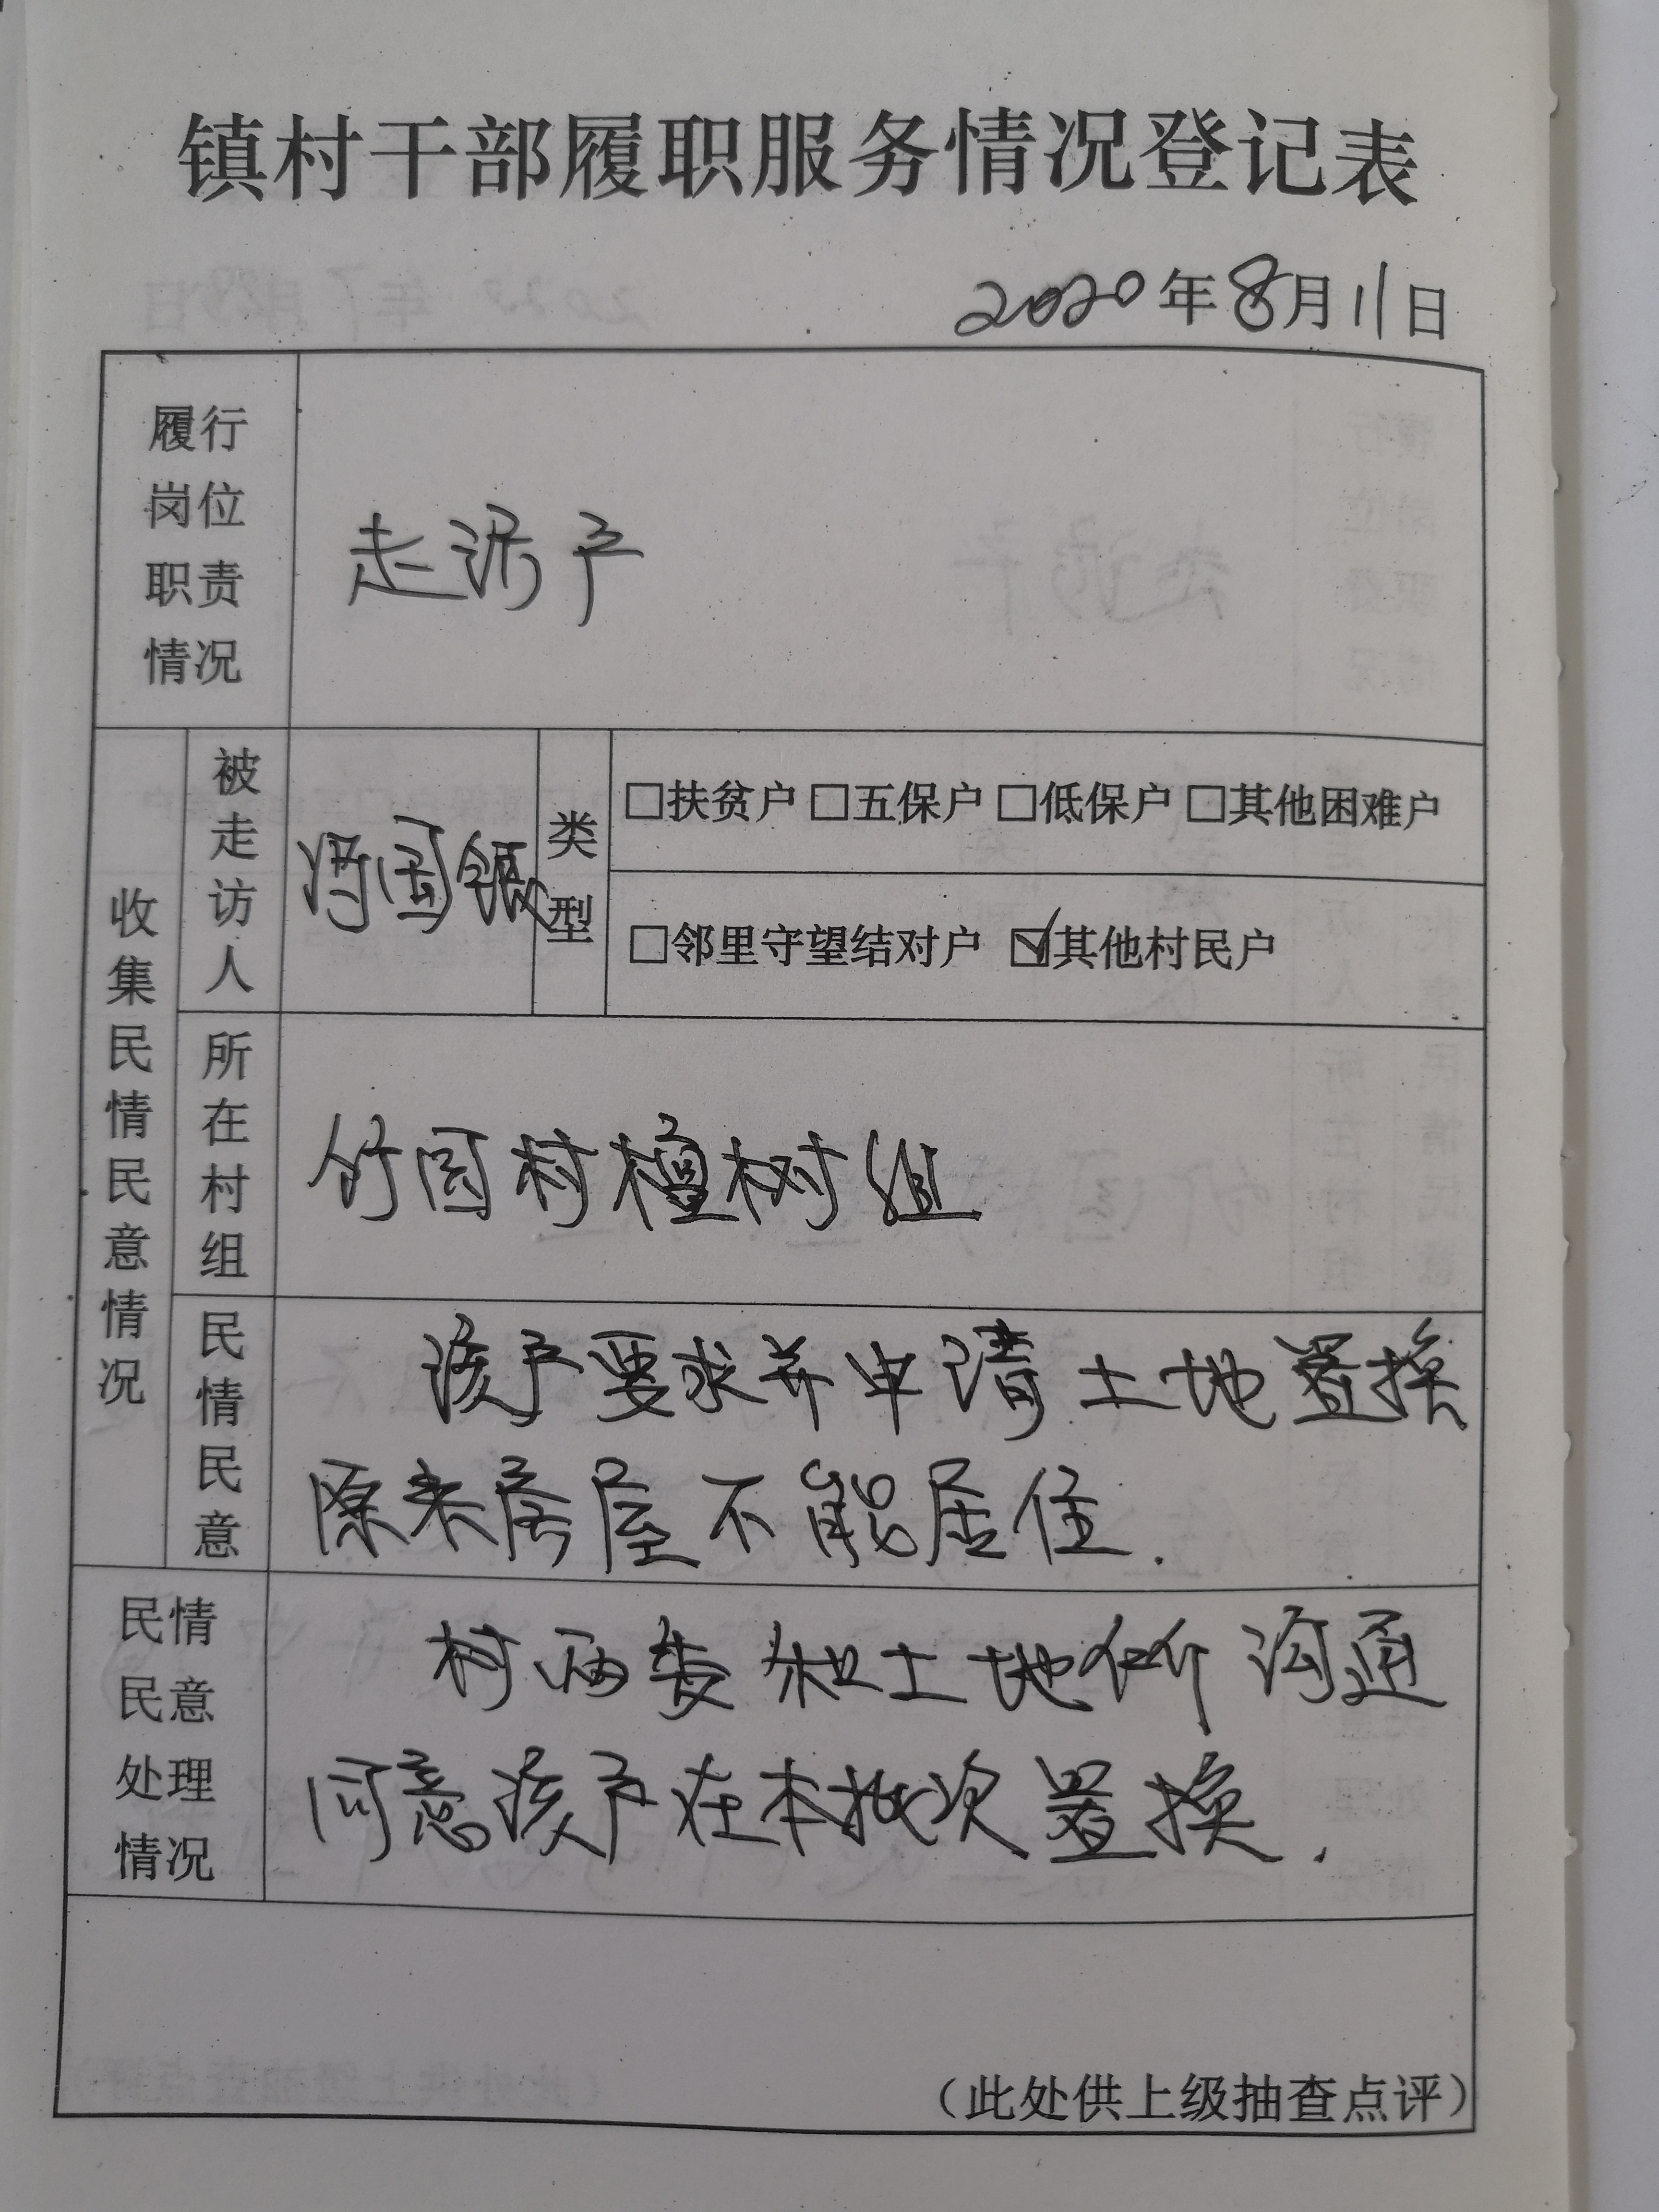 镇村干部履职服务情况登记表
2020年8月11日
履行
岗位
职责
情况
走访户
收集民情民意情况
被走访人
国银
类型
□扶贫户 □五保户 □低保户 □其他困难户
□邻里守望结对户 ☑其他村民户
所在村组
竹园村檀树组
民情民意
该户要求并申请土地置换
原来房屋不能居住.
民情
民意
处理
情况
村两委和土地所沟通
同意该户在本批次置换.
(此处供上级抽查点评)